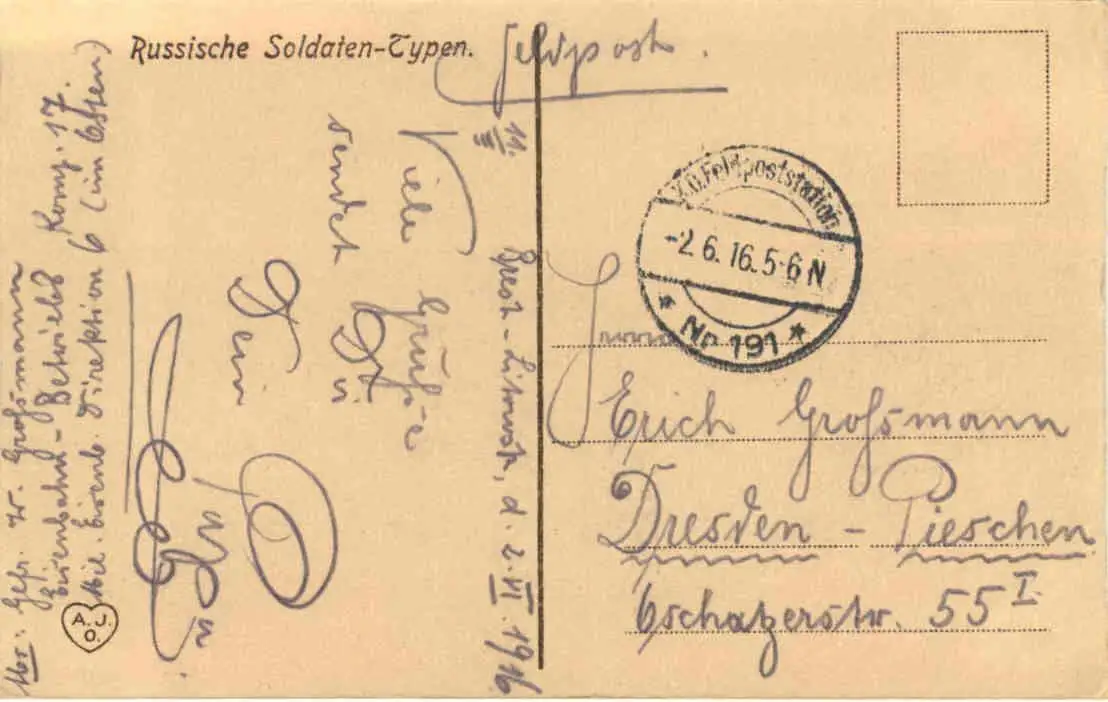 Russische Soldaten-Typen.
Feldpost.
K.D.Feldpoststation
-2.6.16.5-6N
* No 191 *
Erich Großmann
Dresden - Pieschen
Oschatzerstr. 55 I.
11./III
Brest-Litowsk, d. 2.VI.1916.
Viele Grüße
sendet Dir
Dein
Abs: Gefr. W. Großmann
Eisenbahn-Betriebs Komp. 17.
Mil. Eisenb. Direktion 6 (im Osten)
A.J.
O.